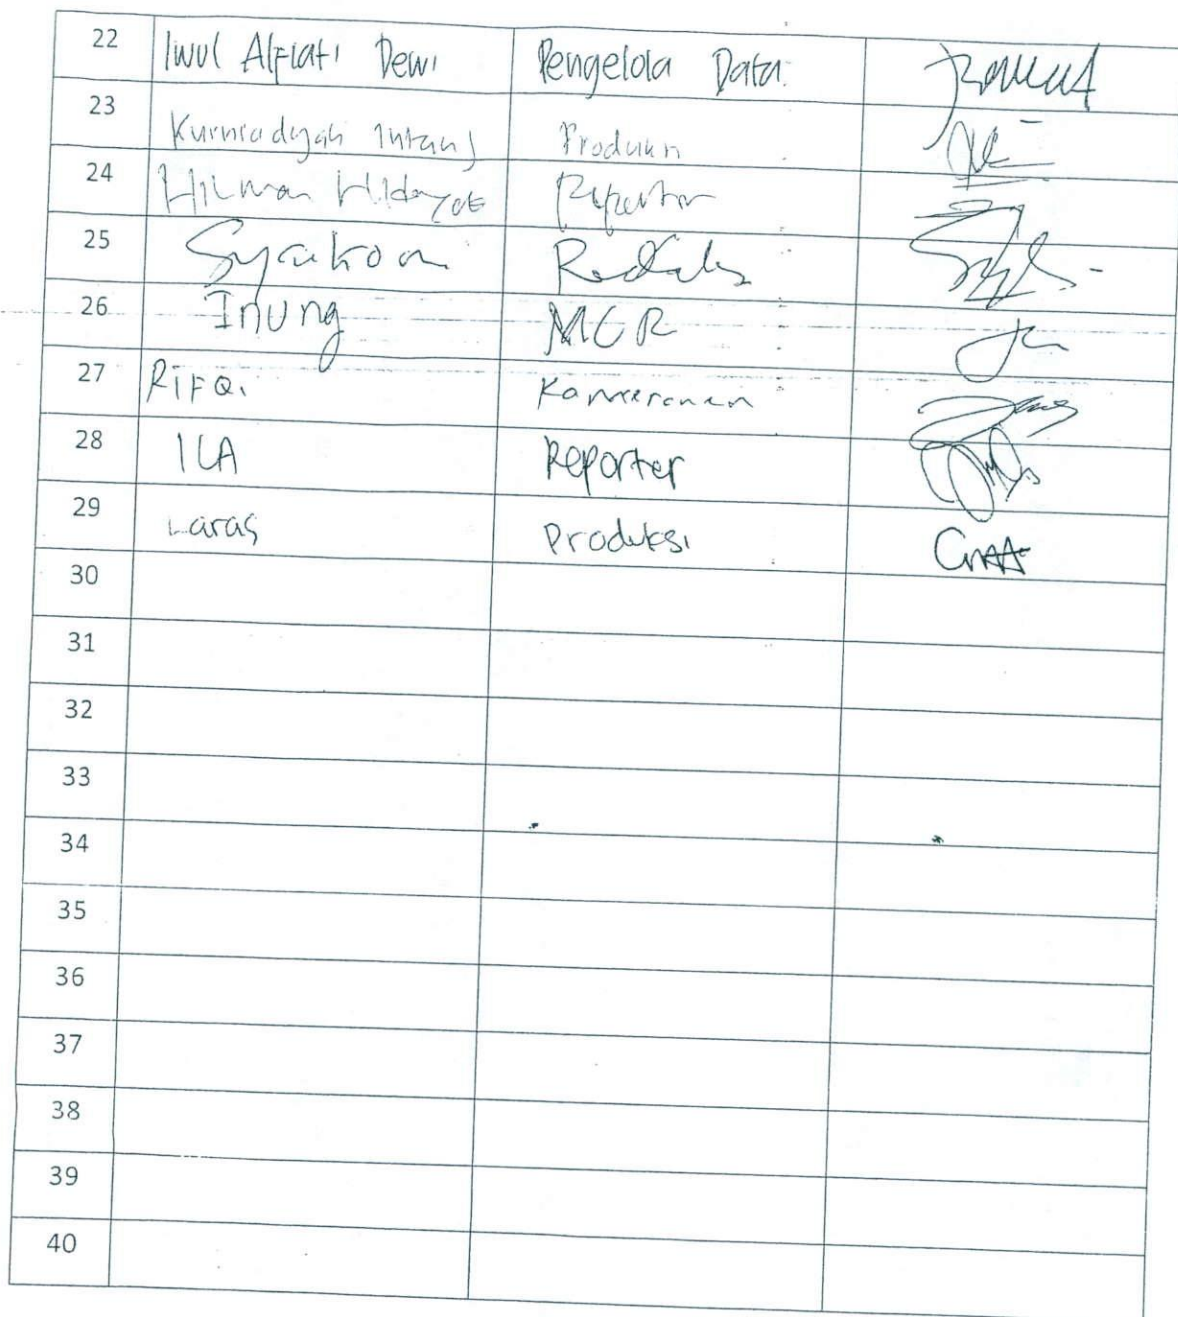 22 Iwul Alfiati Dewi Pengelola Data
23 Kurniadyah Intan Produksi
24 Hilman Hidayat Reporter
25 Syaikoon Redaksi
26 Inung MCR
27 RIFQi Kameramen
28 ILA Reporter
29 Laras Produksi
30
31
32
33
34
35
36
37
38
39
40